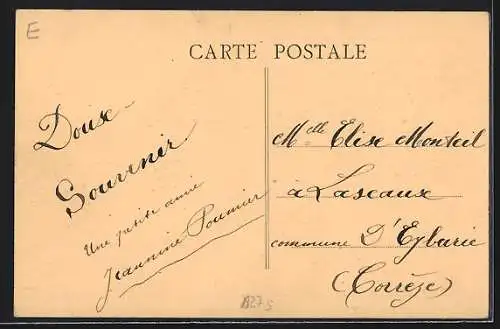 E
CARTE POSTALE
Doux
Souvenir
Une petite amie
Jeannine Poumier
Melle Elise Monteil
à Lascaux
commune D'Eyburie
(Corrèze)